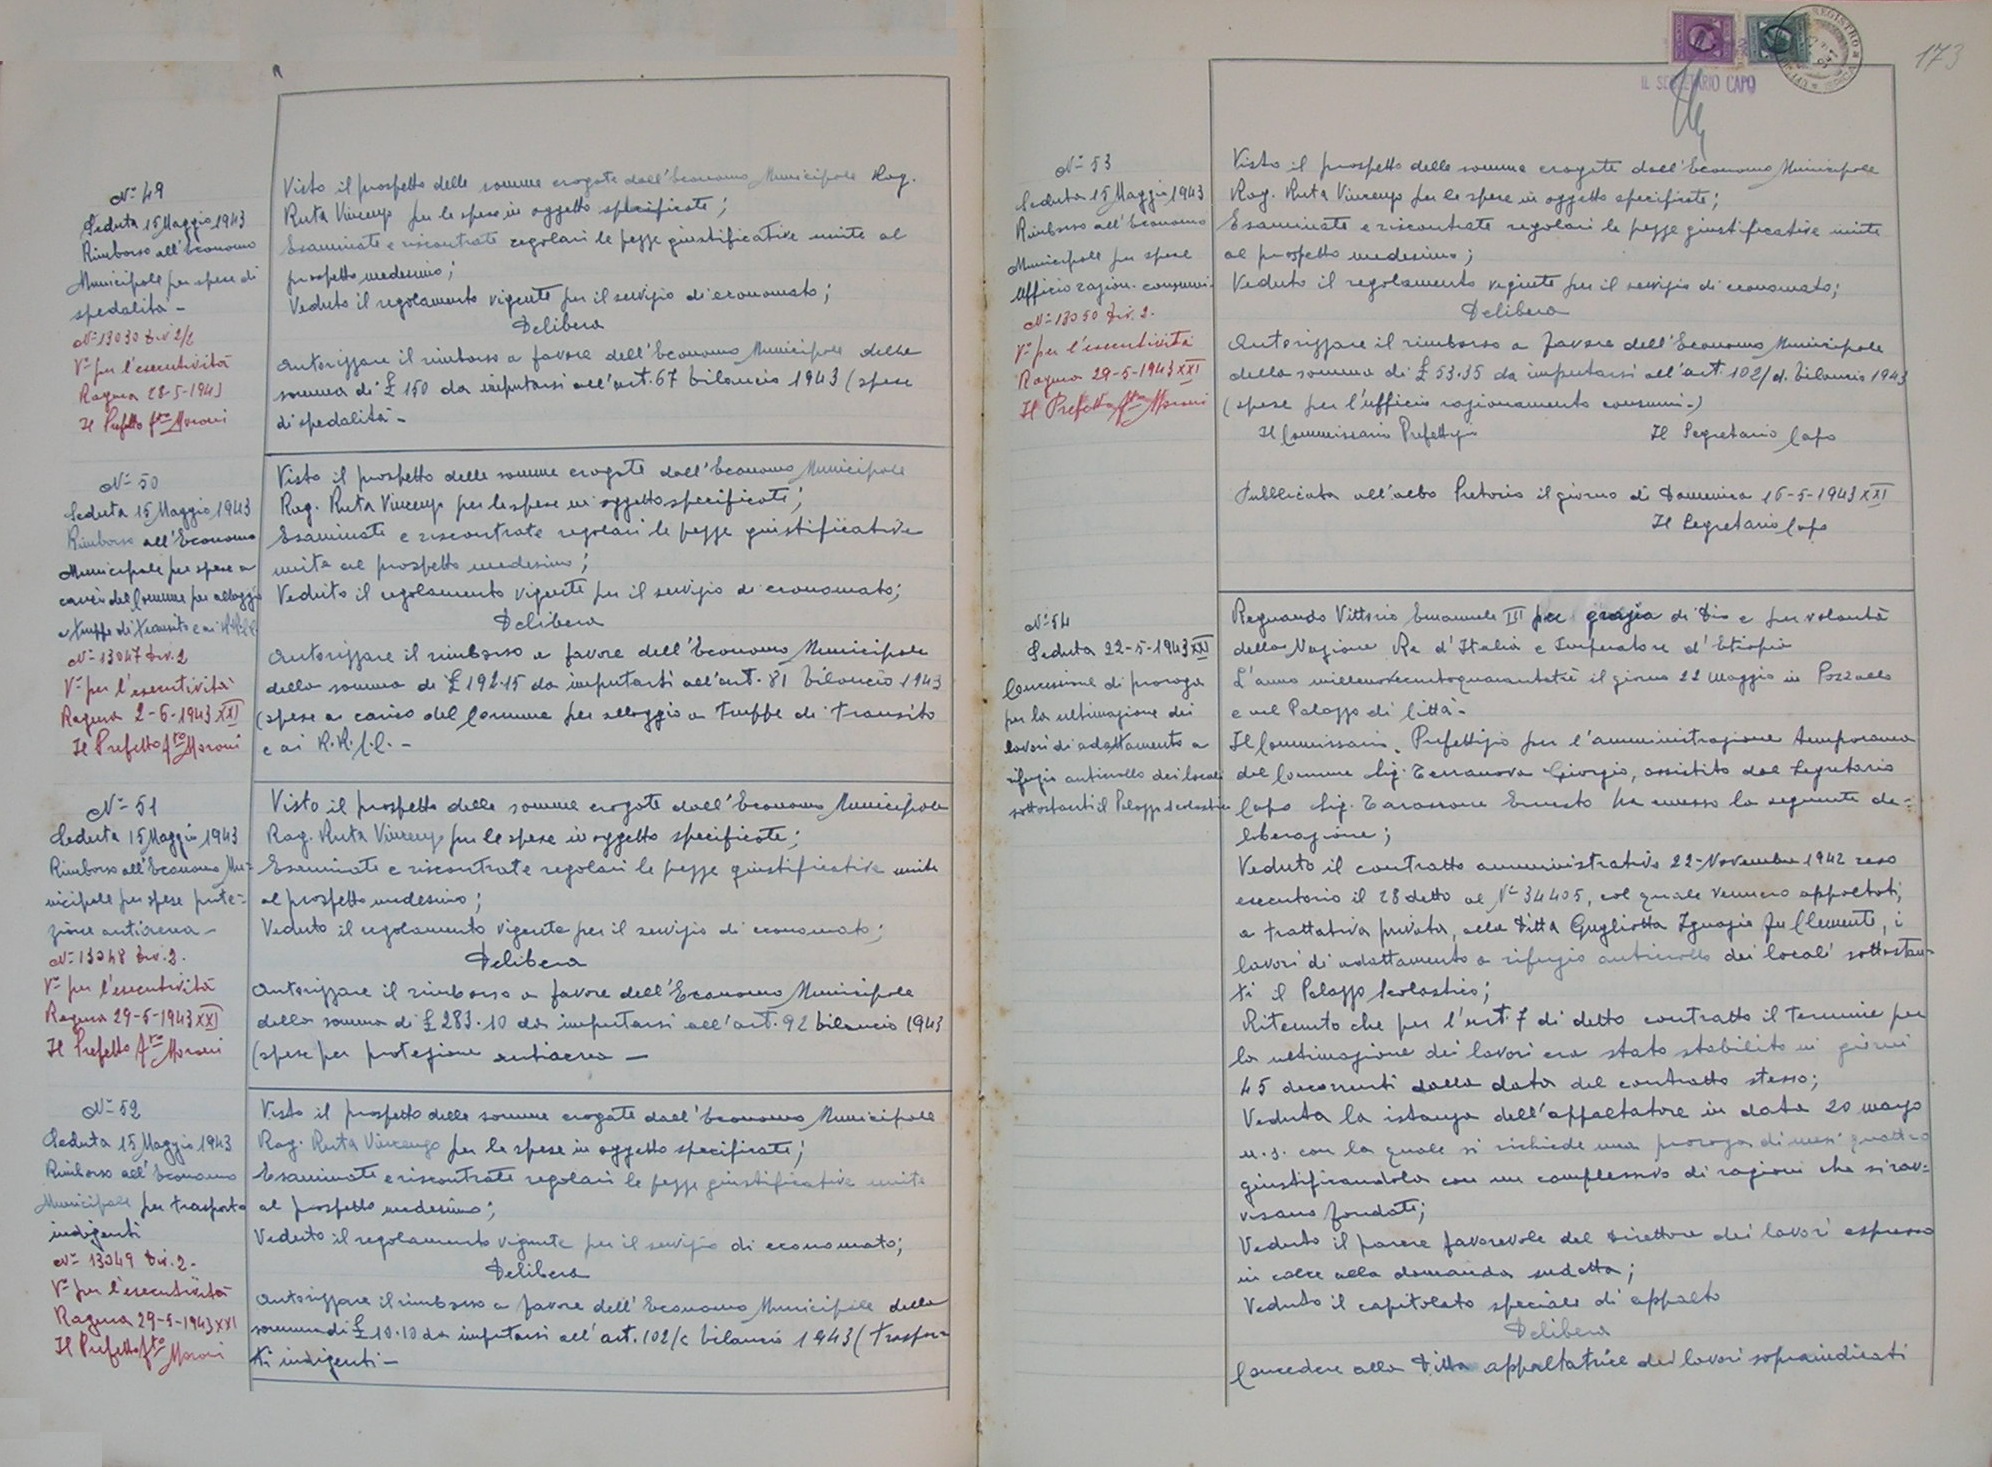 N° 49
Seduta 15 Maggio 1943
Rimborso all'Economo
Municipale per spese di
spedalità -
N° 13030 Div 2/2
V° per l'esecutività
Ragusa 28-5-1943
Il Prefetto fto Moroni
Visto il prospetto delle somme erogate dall'Economo Municipale Rag.
Ruta Vincenzo per le spese in oggetto specificate;
Esaminate e riscontrate regolari le pezze giustificative unite al
prospetto medesimo;
Veduto il regolamento vigente per il servizio di economato;
Delibera
Autorizzare il rimborso a favore dell'Economo Municipale della
somma di £ 150 da imputarsi all'art. 67 bilancio 1943 (spese
di spedalità -
N° 50
Seduta 15 Maggio 1943
Rimborso all'Economo
Municipale per spese a
carico del Comune per alloggio
a truppe di transito e ai RR.CC.
N° 13047 Div. 2
V° per l'esecutività
Ragusa 2-6-1943 XXI
Il Prefetto fto Moroni
Visto il prospetto delle somme erogate dall'Economo Municipale
Rag. Ruta Vincenzo per le spese in oggetto specificate;
Esaminate e riscontrate regolari le pezze giustificative
unite al prospetto medesimo;
Veduto il regolamento vigente per il servizio di economato;
Delibera
Autorizzare il rimborso a favore dell'Economo Municipale
della somma di £ 192.15 da imputarsi all'art. 81 bilancio 1943
(spese a carico del Comune per alloggio a truppe di transito
e ai R.R. C.C. -
N° 51
Seduta 15 Maggio 1943
Rimborso all'Economo Mu-
nicipale per spese prote-
zione antiaerea -
N° 13048 Div. 2.
V° per l'esecutività
Ragusa 29-5-1943 XXI
Il Prefetto fto Moroni
Visto il prospetto delle somme erogate dall'Economo Municipale
Rag. Ruta Vincenzo per le spese in oggetto specificate;
Esaminate e riscontrate regolari le pezze giustificative unite
al prospetto medesimo;
Veduto il regolamento vigente per il servizio di economato;
Delibera
Autorizzare il rimborso a favore dell'Economo Municipale
della somma di £ 283.10 da imputarsi all'art. 92 bilancio 1943
(spese per protezione antiaerea -
N° 52
Seduta 15 Maggio 1943
Rimborso all'Economo
Municipale per trasporto
indigenti
N° 13049 Div. 2.
V° per l'esecutività
Ragusa 29-5-1943 XXI
Il Prefetto fto Moroni
Visto il prospetto delle somme erogate dall'Economo Municipale
Rag. Ruta Vincenzo per le spese in oggetto specificate;
Esaminate e riscontrate regolari le pezze giustificative unite
al prospetto medesimo;
Veduto il regolamento vigente per il servizio di economato;
Delibera
Autorizzare il rimborso a favore dell'Economo Municipale della
somma di £ 10.10 da imputarsi all'art. 102/c bilancio 1943 (traspor
ti indigenti -
173
IL SEGRETARIO CAPO
N° 53
Seduta 15 Maggio 1943
Rimborso all'Economo
Municipale per spese
Ufficio razion. consumi.
N° 13050 Div. 2.
V° per l'esecutività
Ragusa 29-5-1943 XXI
Il Prefetto fto Moroni
Visto il prospetto delle somme erogate dall'Economo Municipale
Rag. Ruta Vincenzo per le spese in oggetto specificate;
Esaminate e riscontrate regolari le pezze giustificative unite
al prospetto medesimo;
Veduto il regolamento vigente per il servizio di economato;
Delibera
Autorizzare il rimborso a favore dell'Economo Municipale
della somma di £ 53.35 da imputarsi all'art. 102/d. bilancio 1943
(spese per l'ufficio razionamento consumi -)
Il Commissario Prefettizio Il Segretario Capo
Pubblicata all'albo Pretorio il giorno di Domenica 16-5-1943 XXI
Il Segretario Capo
N° 54
Seduta 22-5-1943 XXI
Concessione di proroga
per la ultimazione dei
lavori di adattamento a
rifugio anticrollo dei locali
sottostanti il Palazzo Scolastico
Regnando Vittorio Emanuele III per grazia di Dio e per volontà
della Nazione Re d'Italia e Imperatore d'Etiopia
L'anno millenovecentoquarantatrè il giorno 22 Maggio in Pozzallo
e nel Palazzo di Città -
Il Commissario Prefettizio per l'amministrazione temporanea
del Comune Sig. Terranova Giorgio, assistito dal Segretario
Capo Sig. Tarascone Ernesto ha emesso la seguente de=
liberazione;
Veduto il contratto amministrativo 22-Novembre 1942 reso
esecutorio il 28 detto al N° 34405, col quale vennero appaltati,
a trattativa privata, alla Ditta Gugliotta Ignazio fu Clemente, i
lavori di adattamento a rifugio anticrollo dei locali sottostan-
ti il Palazzo Scolastico;
Ritenuto che per l'art. 7 di detto contratto il termine per
la ultimazione dei lavori era stato stabilito in giorni
45 decorrenti dalla data del contratto stesso;
Veduta la istanza dell'appaltatore in data 20 marzo
u.s. con la quale si richiede una proroga di mesi quattro
giustificandola con un complesso di ragioni che si rav=
visano fondate;
Veduto il parere favorevole del Direttore dei lavori espresso
in calce alla domanda sudetta;
Veduto il capitolato speciale di appalto
Delibera
Concedere alla Ditta appaltatrice dei lavori sopraindicati